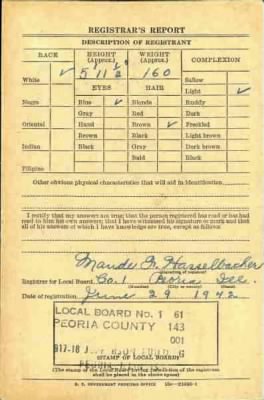 REGISTRAR'S REPORT
DESCRIPTION OF REGISTRANT
RACE HEIGHT (Approx.) WEIGHT (Approx.) COMPLEXION
White ✓ 5 11 1/2 160 Sallow
EYES HAIR Light ✓
Negro Blue ✓ Blonde Ruddy
Gray Red Dark
Oriental Hazel Brown ✓ Freckled
Brown Black Light brown
Indian Black Gray Dark brown
Bald Black
Filipino
Other obvious physical characteristics that will aid in identification
I certify that my answers are true; that the person registered has read or has had
read to him his own answers; that I have witnessed his signature or mark and that
all of his answers of which I have knowledge are true, except as follows:
Maude Hasselbacher
(Signature of registrar)
Registrar for Local Board Co. 1 Peoria Ill.
(Number) (City or county) (State)
Date of registration June 29 1942
LOCAL BOARD No. 1 61
PEORIA COUNTY 143
001
STAMP OF LOCAL BOARD
(The stamp of the Local Board having jurisdiction of the registrant
shall be placed in the above space)
U. S. GOVERNMENT PRINTING OFFICE